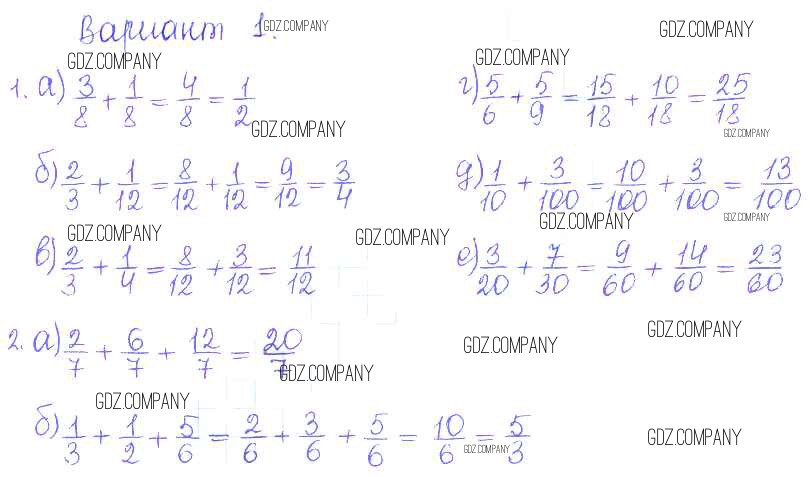 Вариант 1. GDZ.COMPANY GDZ.COMPANY
GDZ.COMPANY GDZ.COMPANY
1. а) 3/8 + 1/8 = 4/8 = 1/2
г) 5/6 + 5/9 = 15/18 + 10/18 = 25/18
GDZ.COMPANY GDZ.COMPANY
б) 2/3 + 1/12 = 8/12 + 1/12 = 9/12 = 3/4
д) 1/10 + 3/100 = 10/100 + 3/100 = 13/100
GDZ.COMPANY GDZ.COMPANY GDZ.COMPANY GDZ.COMPANY
в) 2/3 + 1/4 = 8/12 + 3/12 = 11/12
е) 3/20 + 7/30 = 9/60 + 14/60 = 23/60
2. а) 2/7 + 6/7 + 12/7 = 20/7
GDZ.COMPANY GDZ.COMPANY
GDZ.COMPANY
GDZ.COMPANY
б) 1/3 + 1/2 + 5/6 = 2/6 + 3/6 + 5/6 = 10/6 = 5/3
GDZ.COMPANY GDZ.COMPANY